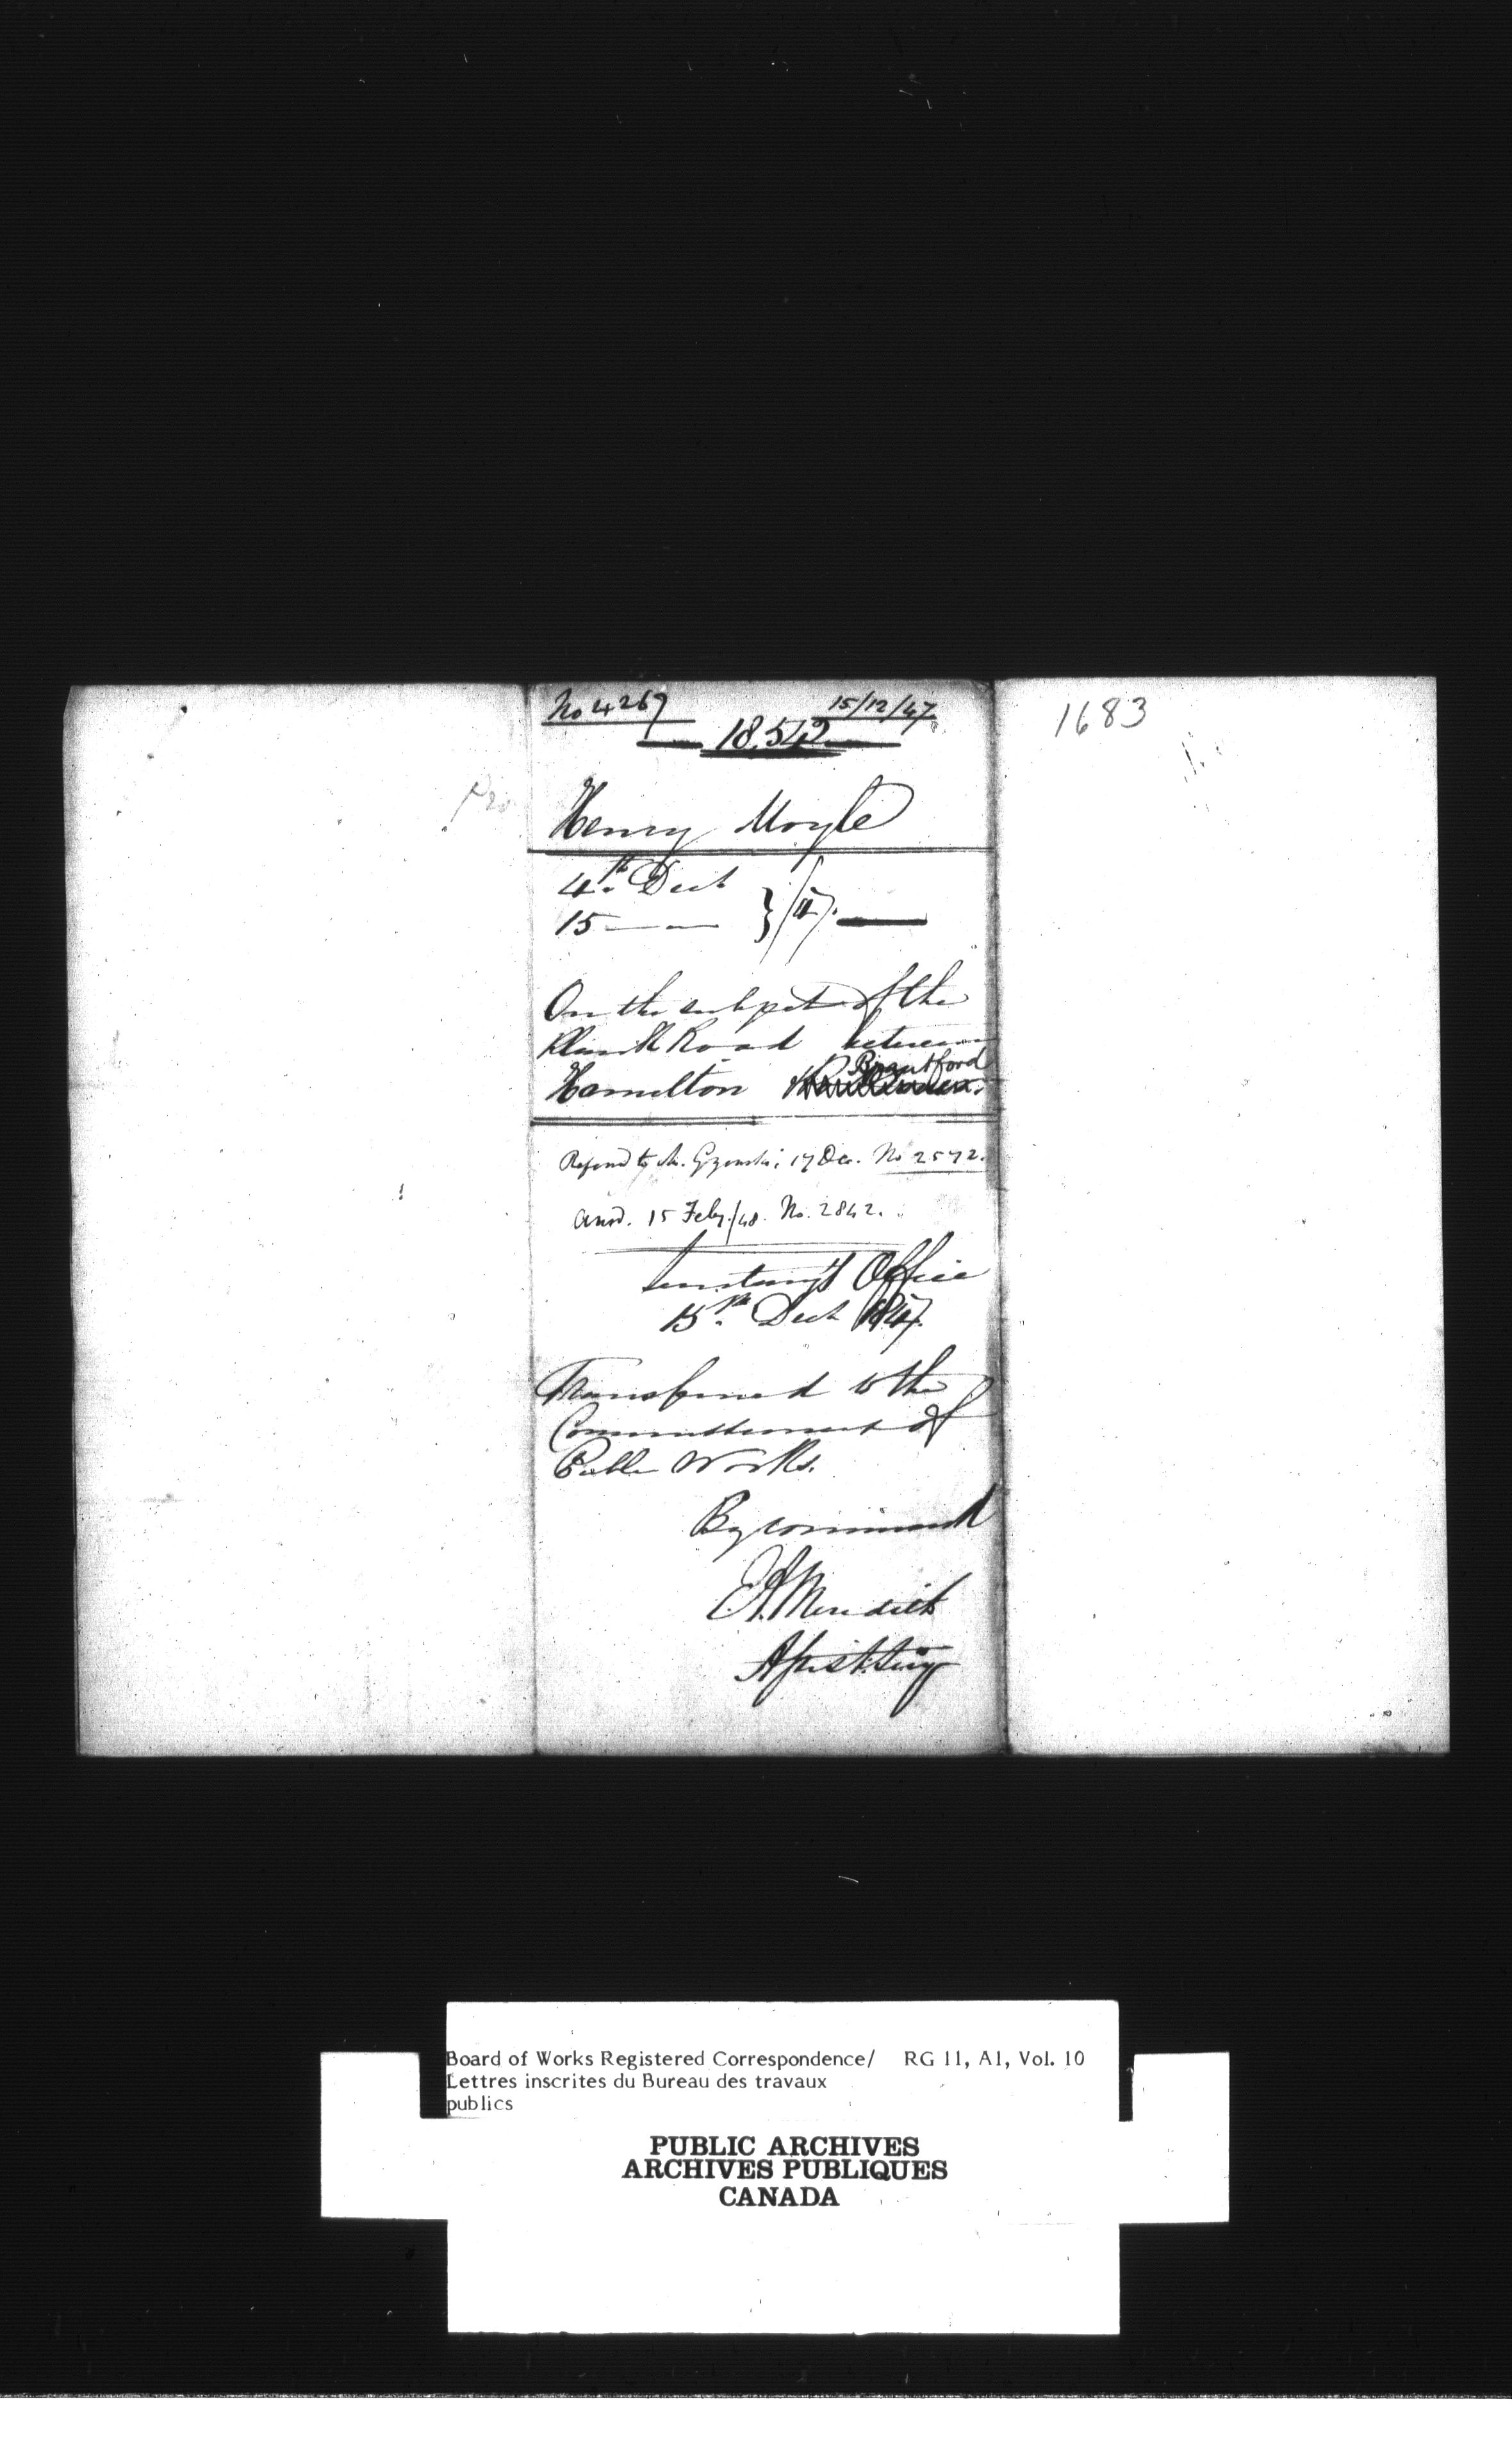 No 4267 15/12/47
18.542
1683
Henry Moyle
4th Dect
15 — — } /47. —
On the subject of the
Plank Road between
Brantford
Hamilton &
Referred to Mr. Gzowski, 17 Dec. No 2572.
Answd. 15 Feby./48. No. 2842.
Secretary's Office
15th Dect 1847.
Transferred to the
Commissioners of
Public Works.
By command
E.A. Meredith
Asst. Secy
Board of Works Registered Correspondence/ RG 11, A1, Vol. 10
Lettres inscrites du Bureau des travaux
publics
PUBLIC ARCHIVES
ARCHIVES PUBLIQUES
CANADA